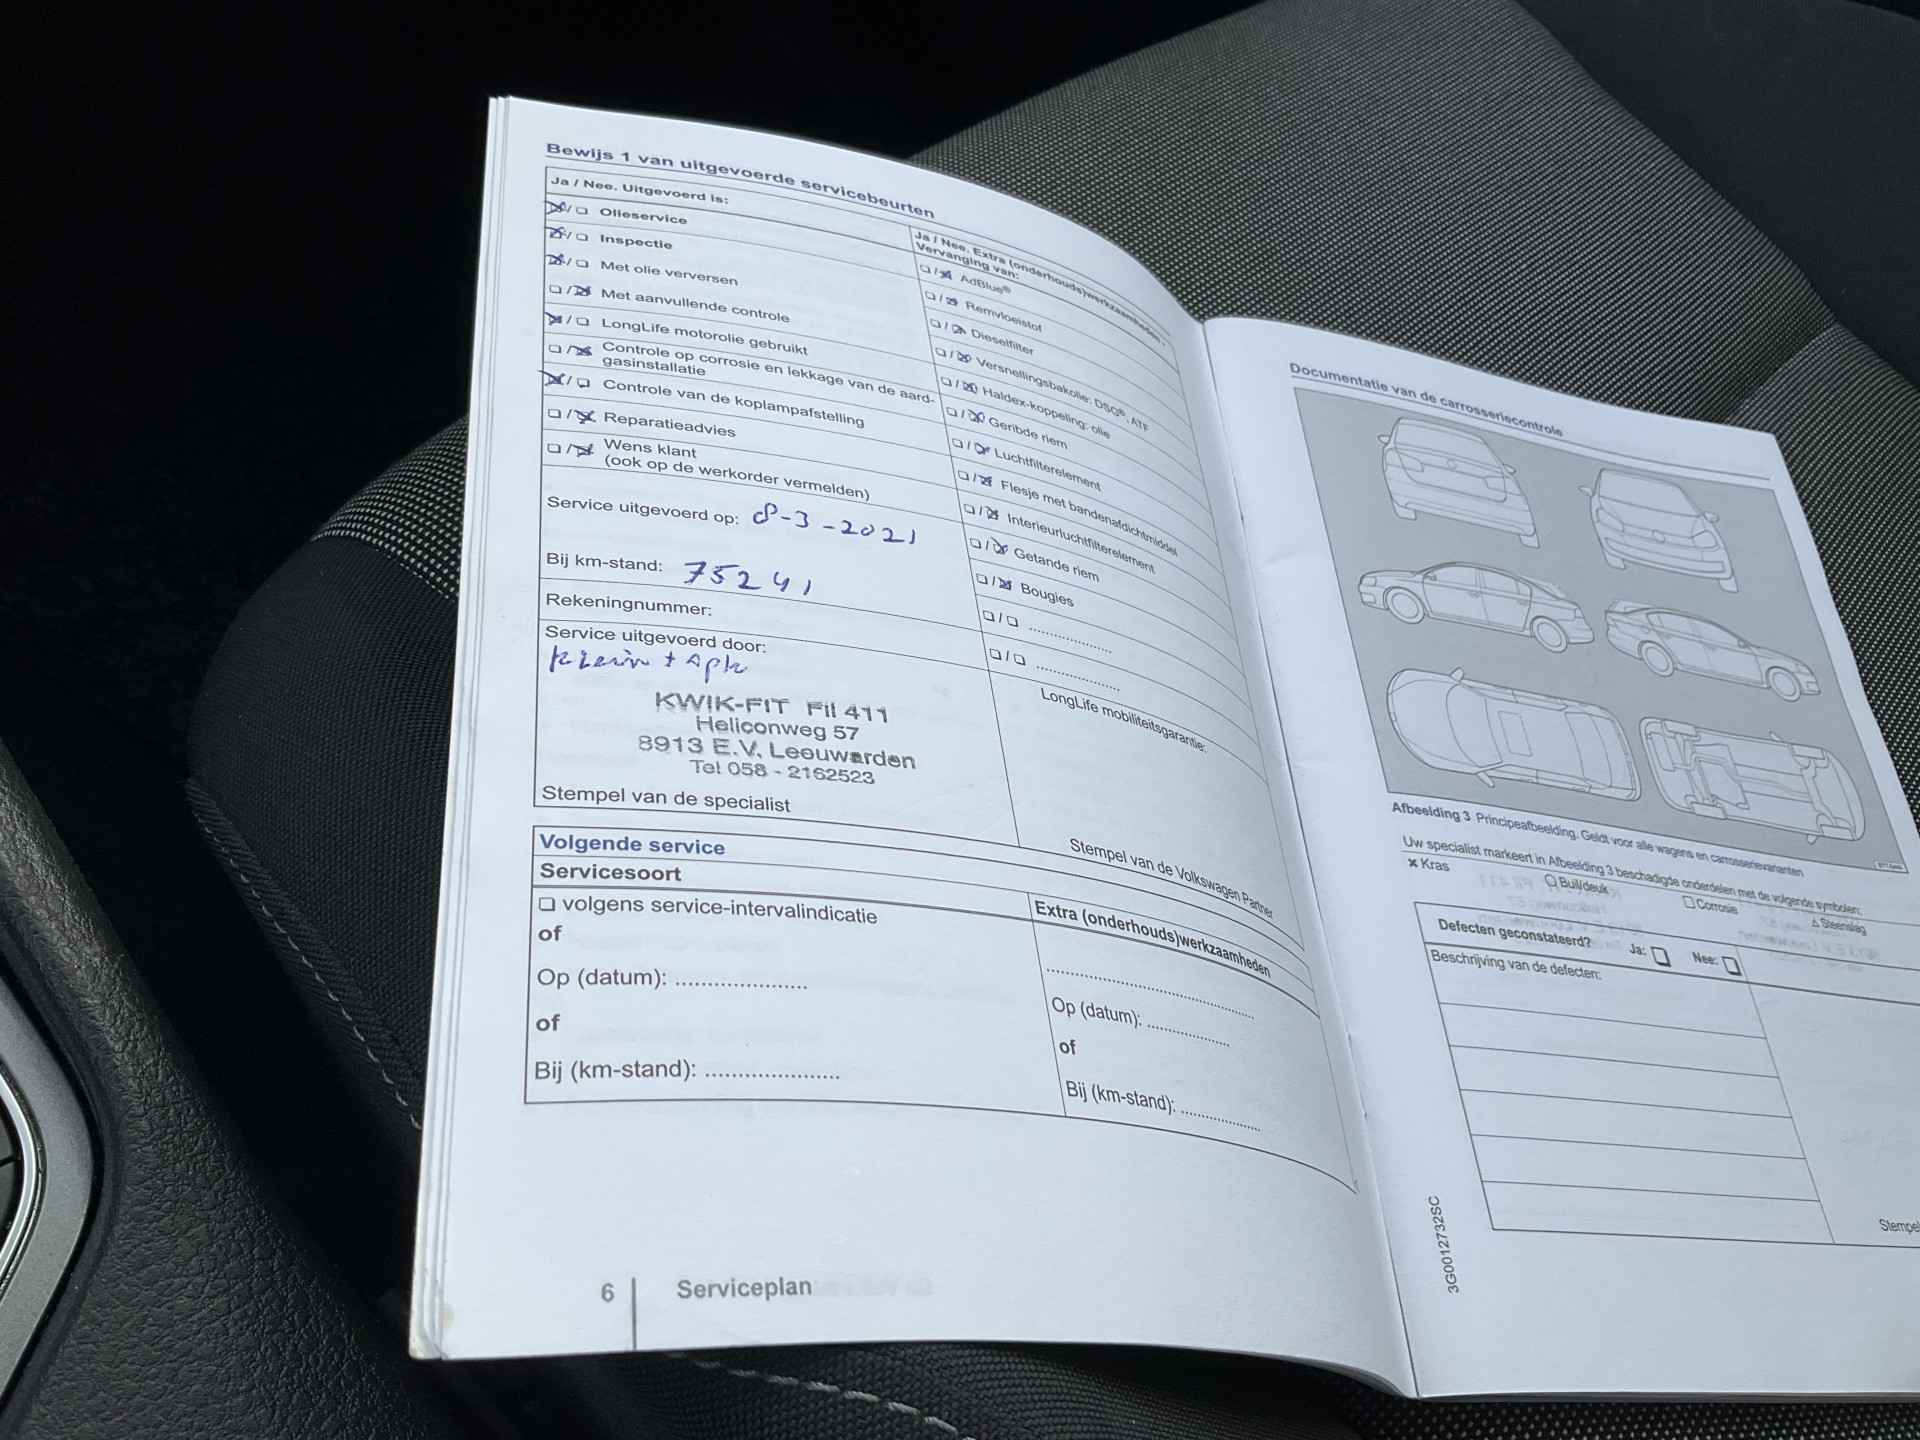 Bewijs 1 van uitgevoerde servicebeurten
Ja / Nee. Uitgevoerd is:
Olieservice
Inspectie
Met olie verversen
Met aanvullende controle
LongLife motorolie gebruikt
Controle op corrosie en lekkage van de aard-
gasinstallatie
Controle van de koplampafstelling
Reparatieadvies
Wens klant
(ook op de werkorder vermelden)
Service uitgevoerd op: 8-3-2021
Bij km-stand: 75241
Rekeningnummer:
Service uitgevoerd door:
Klein + Apk
KWIK-FIT Fil 411
Heliconweg 57
8913 E.V. Leeuwarden
Tel 058 - 2162523
Stempel van de specialist
Ja / Nee. Extra (onderhouds)werkzaamheden -
Vervanging van:
AdBlue®
Remvloeistof
Dieselfilter
Versnellingsbakolie: DSG®, ATF
Haldex-koppeling: olie
Geribde riem
Luchtfilterelement
Flesje met bandenafdichtmiddel
Interieurluchtfilterelement
Getande riem
Bougies
LongLife mobiliteitsgarantie:
Stempel van de Volkswagen Partner
Volgende service
Servicesoort
volgens service-intervalindicatie
of
Op (datum): .....................
of
Bij (km-stand): .....................
Extra (onderhouds)werkzaamheden
Op (datum): .............
of
Bij (km-stand): .............
6 | Serviceplan
Documentatie van de carrosseriecontrole
Afbeelding 3 Principeafbeelding. Geldt voor alle wagens en carrosserievarianten
Uw specialist markeert in Afbeelding 3 beschadigde onderdelen met de volgende symbolen:
× Kras
Buil/deuk
Corrosie
Δ Steenslag
Defecten geconstateerd? Ja: Nee:
Beschrijving van de defecten:
Stempel
3G0012732SC